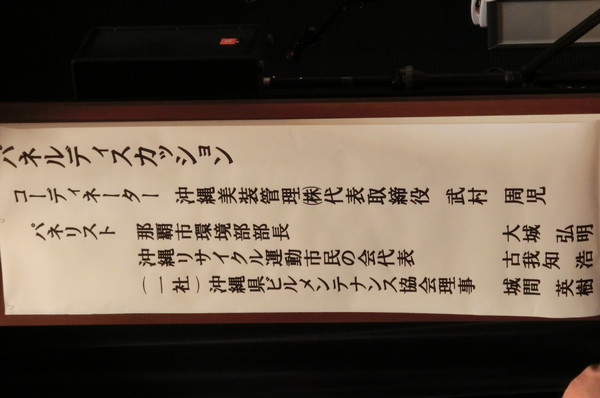 パネルディスカッション
コーディネーター 沖縄美装管理㈱代表取締役 武村 周児
パネリスト 那覇市環境部部長 大城 弘明
沖縄リサイクル運動市民の会代表 古我知 浩
(一社)沖縄県ビルメンテナンス協会理事 城間 英樹